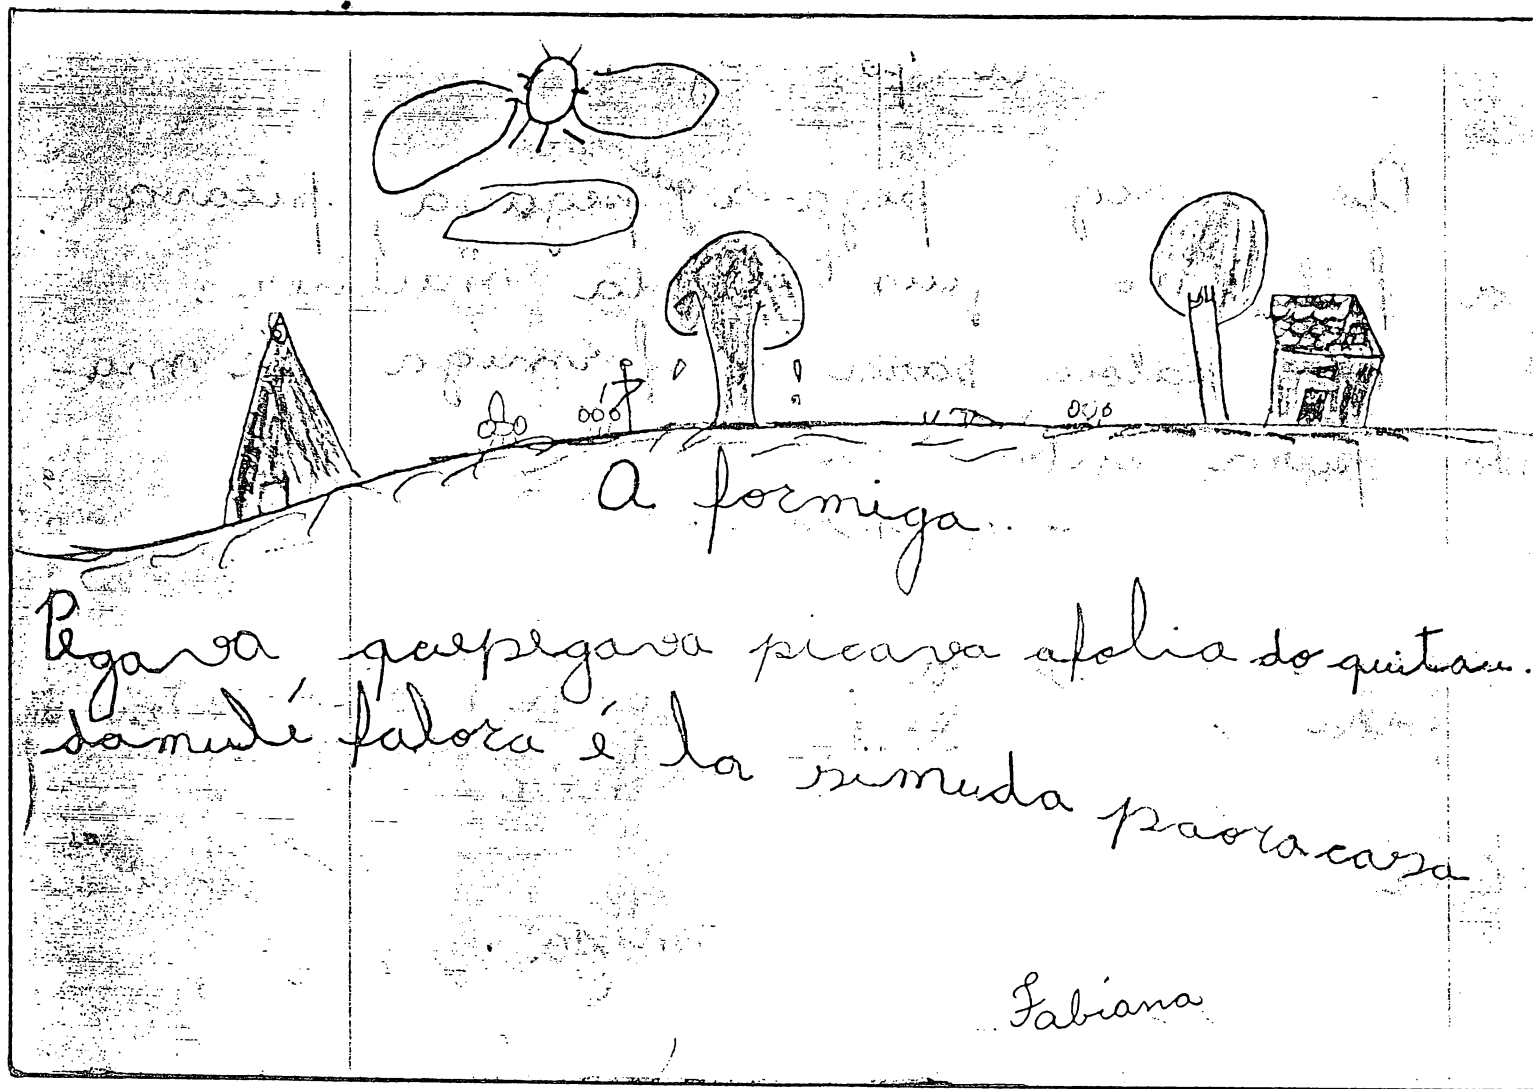 A formiga
Pegava quepegava picava afolia do quitau.
damulé falora é la simuda paora casa
Fabiana